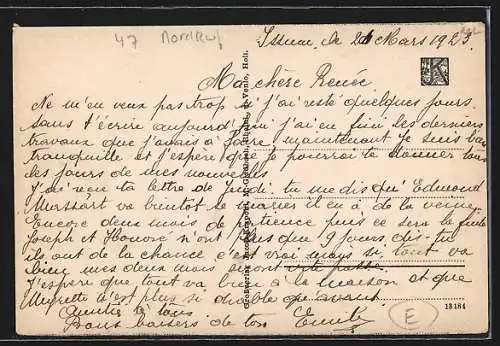 47 Nordkupf
Issum, le 21 Mars 1923
Ma chère Renée
Ne m'en veux pas trop si j'ai resté quelques jours
sans t'écrire aujourd'hui j'ai en fini les derniers
travaux que j'avais à faire, maintenant je suis bien
tranquille et j'espère que je pourrai te donner tous
les jours de mes nouvelles
J'ai reçu ta lettre de jeudi. tu me dis qu'Edmond
va bientôt se marier il en a de la veine
Encore deux mois de patience puis ce sera le
Joseph et Honoré n'ont plus que 9 jours dis-tu
ils ont de la chance c'est vrai mais si tout va
bien mes deux mois seront vite passé
J'espère que tout va bien à la maison et que
n'est plus si que avant
à tous
Bons baisers de ton Emile
E
K
13184